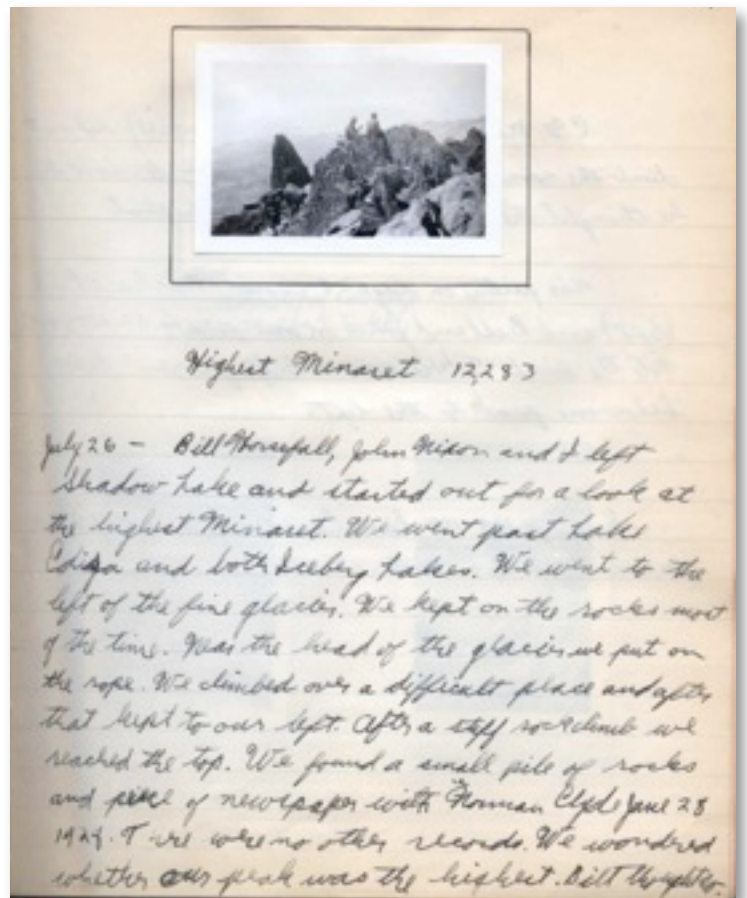 Highest Minaret 12,283
July 26 - Bill Horsfall, John Nixon and I left
Shadow Lake and started out for a look at
the highest Minaret. We went past Lake
Ediza and both Iceberg Lakes. We went to the
left of the fine glacier. We kept on the rocks most
of the time. Near the head of the glacier we put on
the rope. We climbed over a difficult place and after
that kept to our left. After a stiff rock climb we
reached the top. We found a small pile of rocks
and piece of newspaper with Norman Clyde June 28
were no other records. We wondered
whether our peak was the highest. Bill thought so.